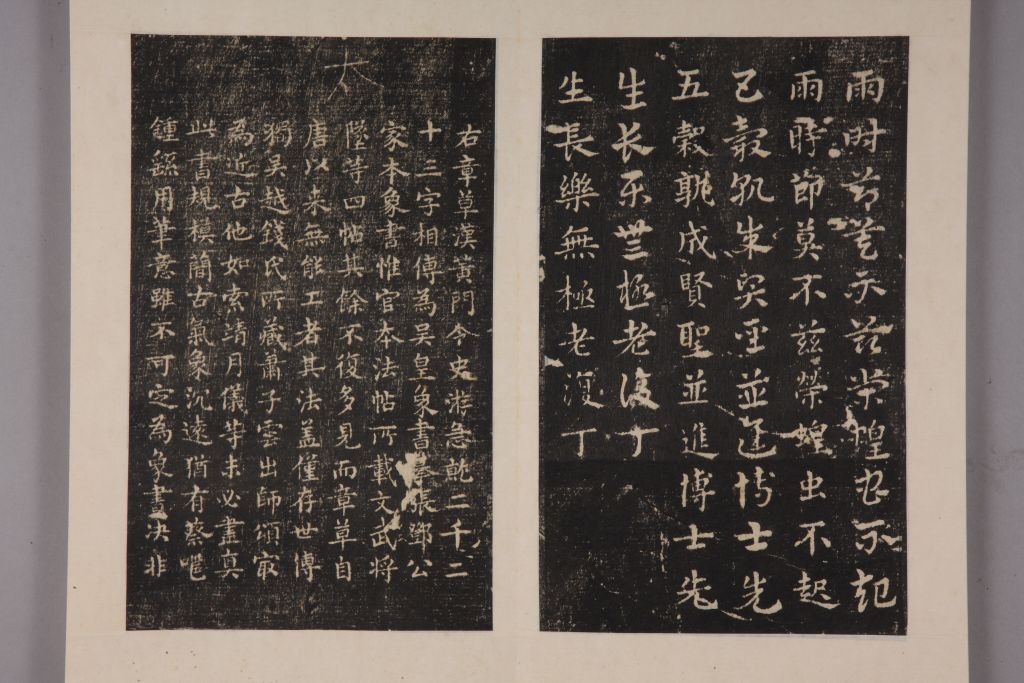 雨時節莫不兹榮蝗虫不起
雨時節莫不兹榮蝗虫不起
五穀孰成賢聖並進博士先
五穀孰成賢聖並進博士先
生长乐無極老復丁
生長樂無極老復丁
太
右章草漢黃門令史游急就二千二
十三字相傳為吳皇象書摹張鄧公
家本象書惟官本法帖所載文武將
墜等四帖其餘不復多見而草草自
唐以来無能工者其法盖僅存世傳
獨吳越錢氏所藏蕭子雲出師頌最
為近古他如索靖月儀等未必盡真
此書規模簡古氣象沉遠猶有蔡邕
鍾繇用筆意雖不可定為象書决非